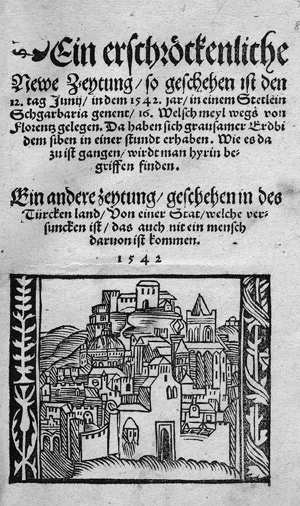 Ein erschröckenliche
Newe Zeytung / so geschehen ist den
12. tag Junij / in dem 1542. jar / in einem Stetlein
Schgarbaria genent / 16. Welsch meyl wegs von
Florentz gelegen. Da haben sich grausamer Erdbi
dem siben in einer stundt erhaben. Wie es da
zu ist gangen / wirdt man hyrin be-
griffen finden.
Ein andere zeytung / geschehen in des
Türcken land / Von einer Stat / welche ver-
suncken ist / das auch nit ein mensch
daruon ist kommen.
1542